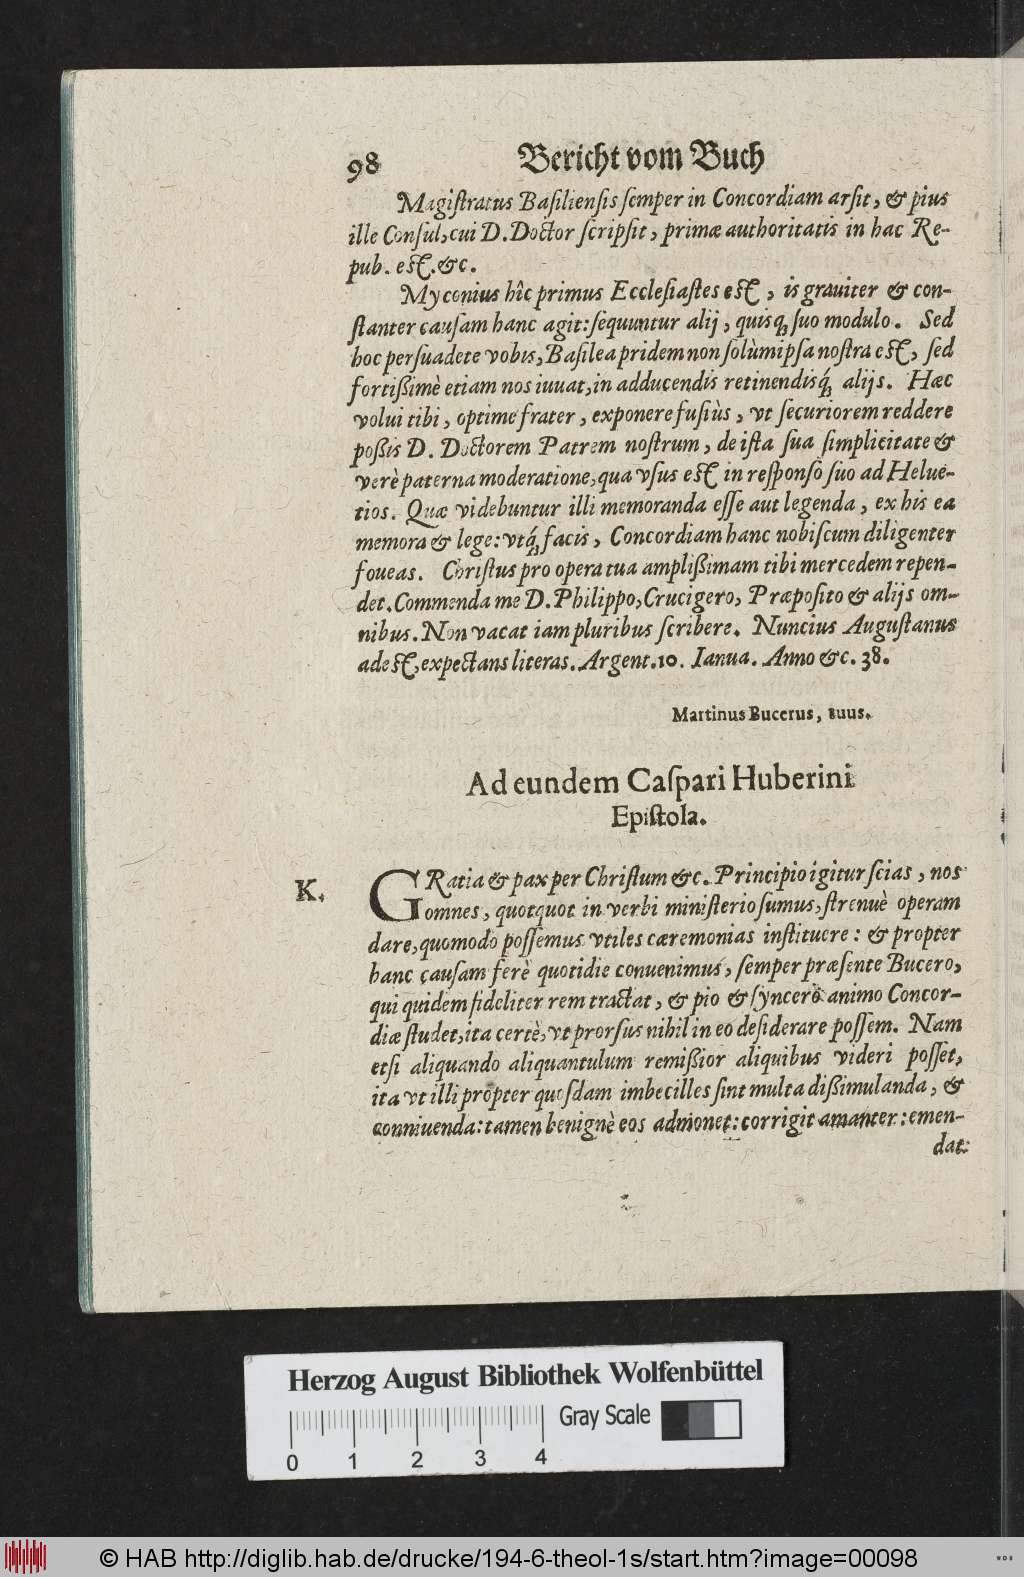 98 Bericht vom Buch
Magiſtratus Baſilienſis ſemper in Concordiam arſit, & pius
ille Conſul, cui D. Doctor ſcripſit, primæ authoritatis in hac Re-
pub. eſt. &c.
Myconius hîc primus Eccleſiaſtes eſt, is graviter & con-
ſtanter cauſam hanc agit: ſequuntur alij, quisq́; ſuo modulo. Sed
hoc perſuadete vobis, Baſilea pridem non ſolùm ipſa noſtra eſt, ſed
fortißimè etiam nos iuuat, in adducendis retinendisq́; alijs. Hæc
volui tibi, optime frater, exponere fuſiùs, vt ſecuriorem reddere
poßis D. Doctorem Patrem noſtrum, de iſta ſua ſimplicitate &
verè paterna moderatione, qua vſus eſt in reſponſo ſuo ad Helue-
tios. Quæ videbuntur illi memoranda eſſe aut legenda, ex his ea
memora & lege: vtq́; facis, Concordiam hanc nobiſcum diligenter
foueas. Chriſtus pro opera tua amplißimam tibi mercedem repen-
det. Commenda me D. Philippo, Crucigero, Præpoſito & alijs om-
nibus. Non vacat iam pluribus ſcribere. Nuncius Auguſtanus
adeſt, expectans literas. Argent. 10. Ianua. Anno &c. 38.
Martinus Bucerus, tuus.
Ad eundem Caſpari Huberini
Epiſtola.
K. GRatia & pax per Chriſtum &c. Principio igitur ſcias, nos
omnes, quotquot in verbi miniſterio ſumus, ſtrenuè operam
dare, quomodo poſſemus vtiles cæremonias inſtituere: & propter
hanc cauſam ferè quotidie conuenimus, ſemper præſente Bucero,
qui quidem fideliter rem tractat, & pio & ſyncero animo Concor-
diæ ſtudet, ita certè, vt prorſus nihil in eo deſiderare poſſem. Nam
etſi aliquando aliquantulum remißior aliquibus videri poſſet,
ita vt illi propter quoſdam imbecilles ſint multa dißimulanda, &
conniuenda: tamen benignè eos admonet: corrigit amanter: emen-
dat
Herzog August Bibliothek Wolfenbüttel
Gray Scale
0 1 2 3 4
© HAB http://diglib.hab.de/drucke/194-6-theol-1s/start.htm?image=00098